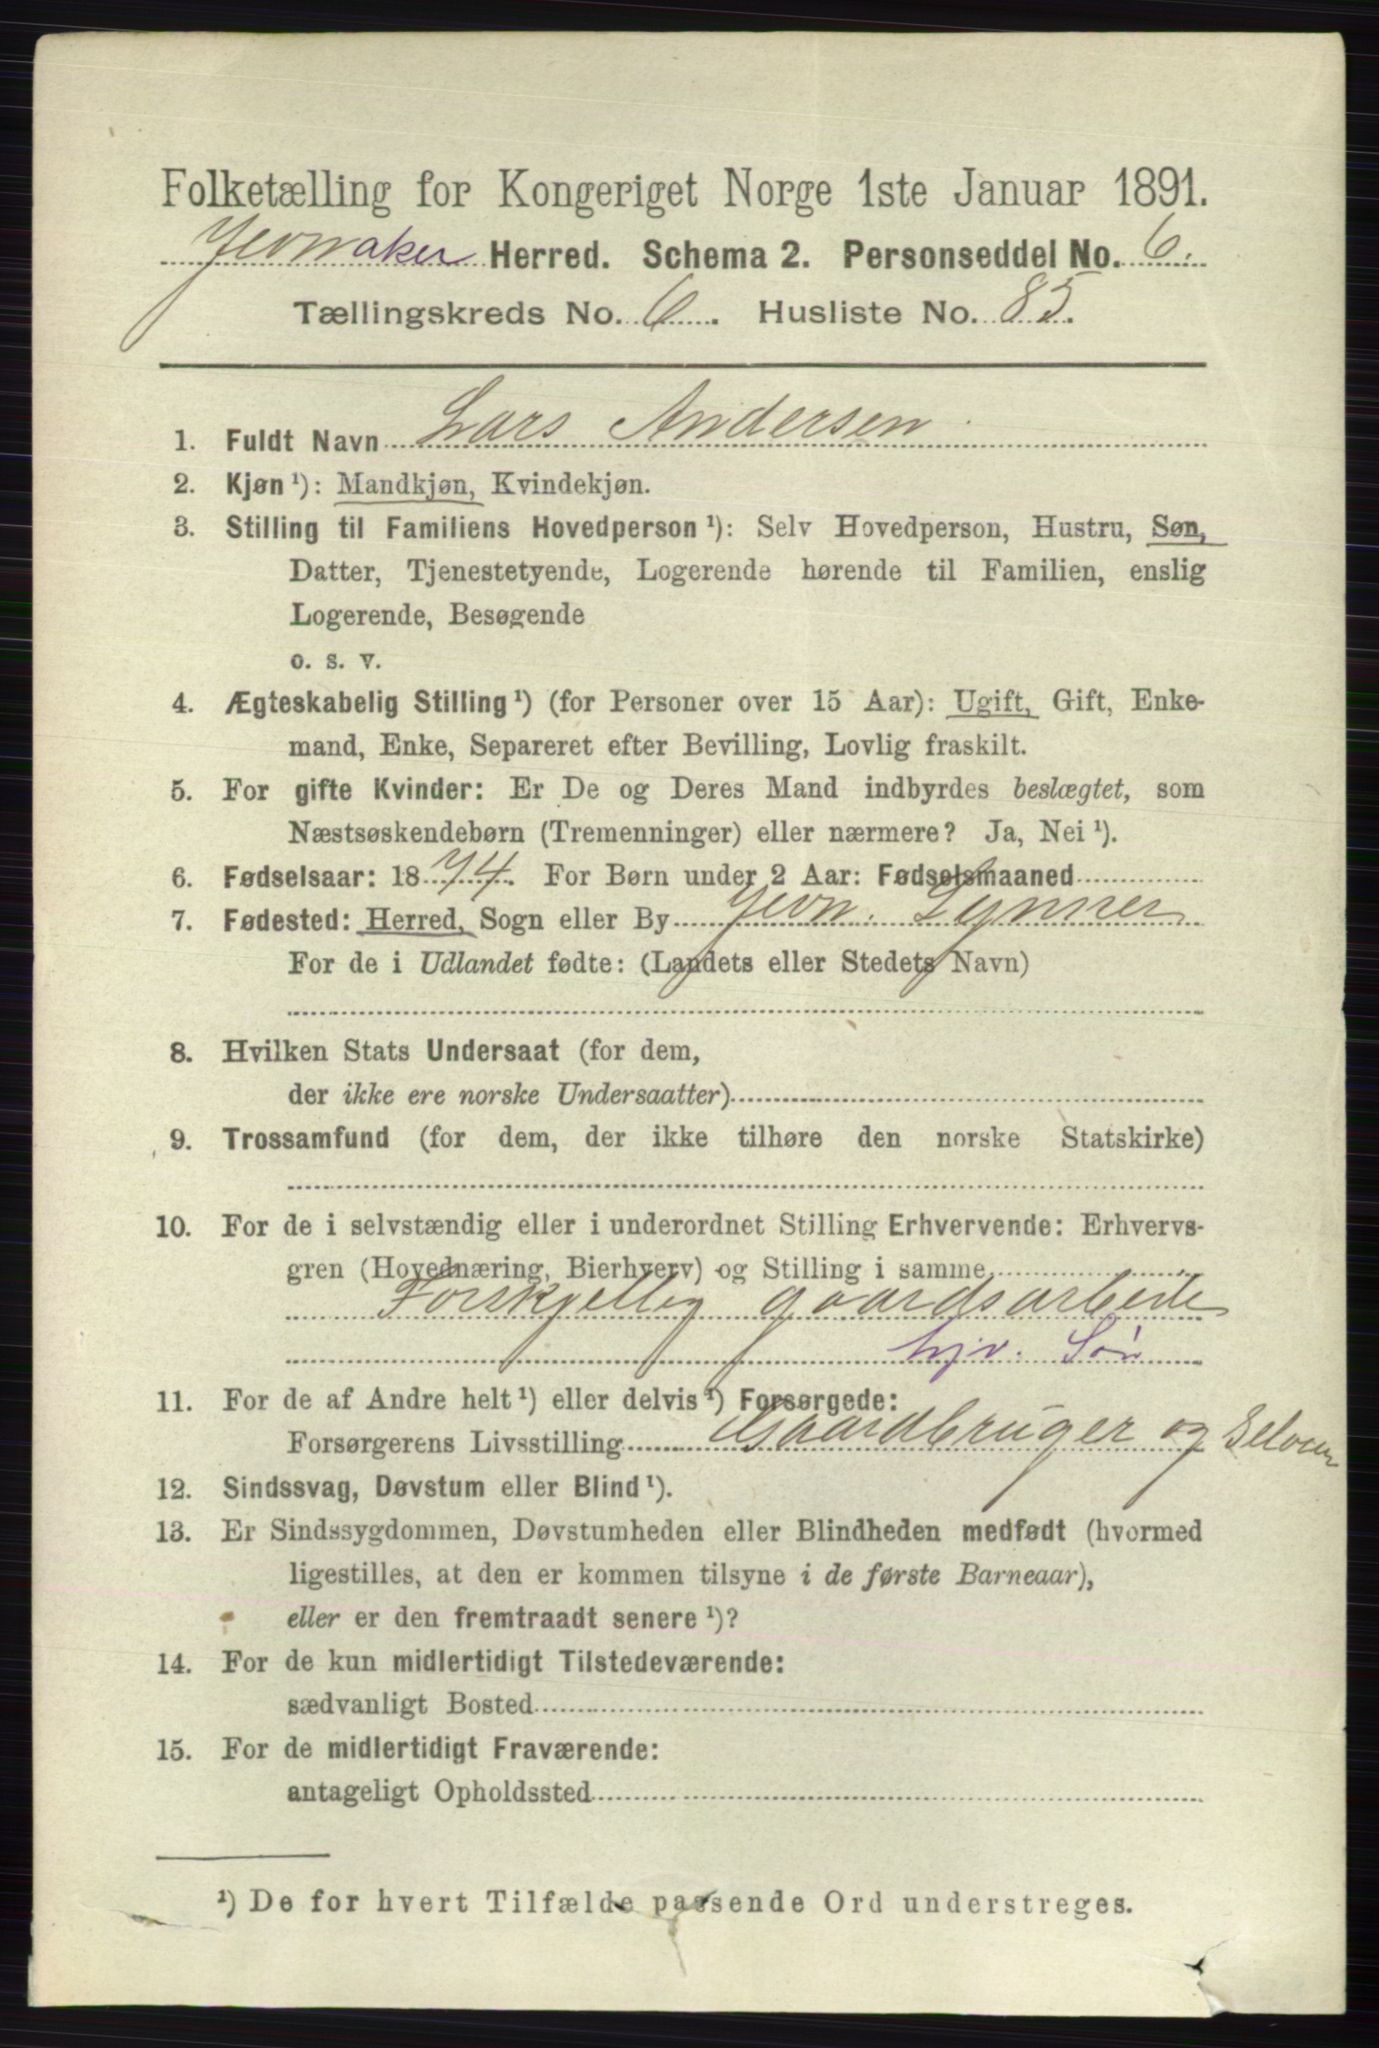 Folketælling for Kongeriget Norge 1ste Januar 1891.
Jevnaker Herred. Schema 2. Personseddel No. 6.
Tællingskreds No. 6. Husliste No. 85.
1. Fuldt Navn Lars Andersen
2. Kjøn ¹): Mandkjøn, Kvindekjøn.
3. Stilling til Familiens Hovedperson ¹): Selv Hovedperson, Hustru, Søn,
Datter, Tjenestetyende, Logerende hørende til Familien, enslig
Logerende, Besøgende
o. s. v.
4. Ægteskabelig Stilling ¹) (for Personer over 15 Aar): Ugift, Gift, Enke-
mand, Enke, Separeret efter Bevilling, Lovlig fraskilt.
5. For gifte Kvinder: Er De og Deres Mand indbyrdes beslægtet, som
Næstsøskendebørn (Tremenninger) eller nærmere? Ja, Nei ¹).
6. Fødselsaar: 1874. For Børn under 2 Aar: Fødselsmaaned
7. Fødested: Herred, Sogn eller By Jevn. Lynner
For de i Udlandet fødte: (Landets eller Stedets Navn)
8. Hvilken Stats Undersaat (for dem,
der ikke ere norske Undersaatter)
9. Trossamfund (for dem, der ikke tilhøre den norske Statskirke)
10. For de i selvstændig eller i underordnet Stilling Erhvervende: Erhvervs-
gren (Hovednæring, Bierhverv) og Stilling i samme
Forskjellig gaardsarbeide
hjv. Søn
11. For de af Andre helt ¹) eller delvis ¹) Forsørgede:
Forsørgerens Livsstilling Gaardbruger og Seloeier
12. Sindssvag, Døvstum eller Blind ¹).
13. Er Sindssygdommen, Døvstumheden eller Blindheden medfødt (hvormed
ligestilles, at den er kommen tilsyne i de første Barneaar),
eller er den fremtraadt senere ¹)?
14. For de kun midlertidigt Tilstedeværende:
sædvanligt Bosted
15. For de midlertidigt Fraværende:
antageligt Opholdssted
¹) De for hvert Tilfælde passende Ord understreges.